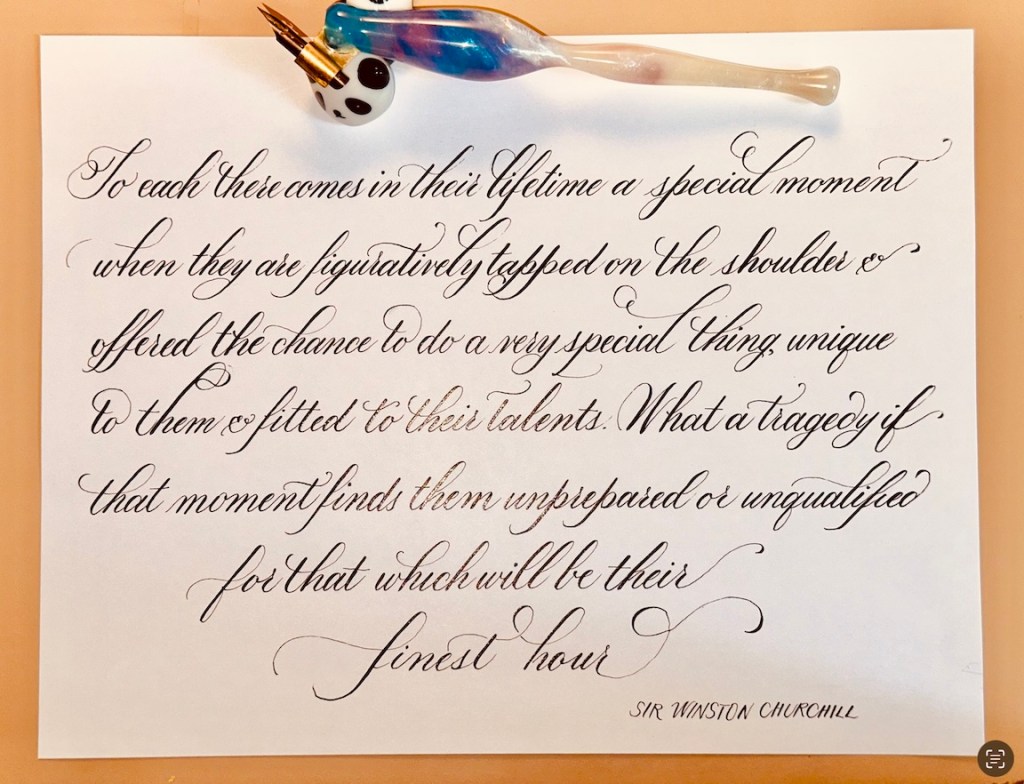 To each there comes in their lifetime a special moment
when they are figuratively tapped on the shoulder &
offered the chance to do a very special thing, unique
to them & fitted to their talents. What a tragedy if
that moment finds them unprepared or unqualified
for that which will be their
finest hour
SIR WINSTON CHURCHILL